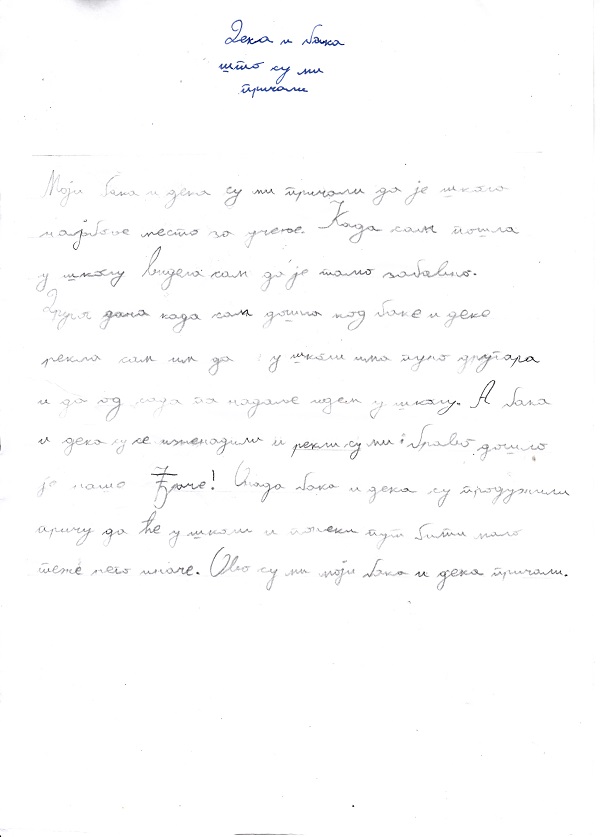 Дека и бака
што су ми
причали
Моји бака и дека су ми причали да је школа
најбоље место за учење. Када сам пошла
у школу видела сам да је тамо забавно.
Други дана када сам дошла код баке и деке
рекла сам им да у школи има пуно другара
и да од сада па надаље идем у школу. А бака
и дека су се изненадили и рекли су ми: браво дошло
је наше Ђаче! Онда бака и дека су продужили
причу да ће у школи и понеки пут бити мало
теже него иначе. Ово су ми моји бака и дека причали.